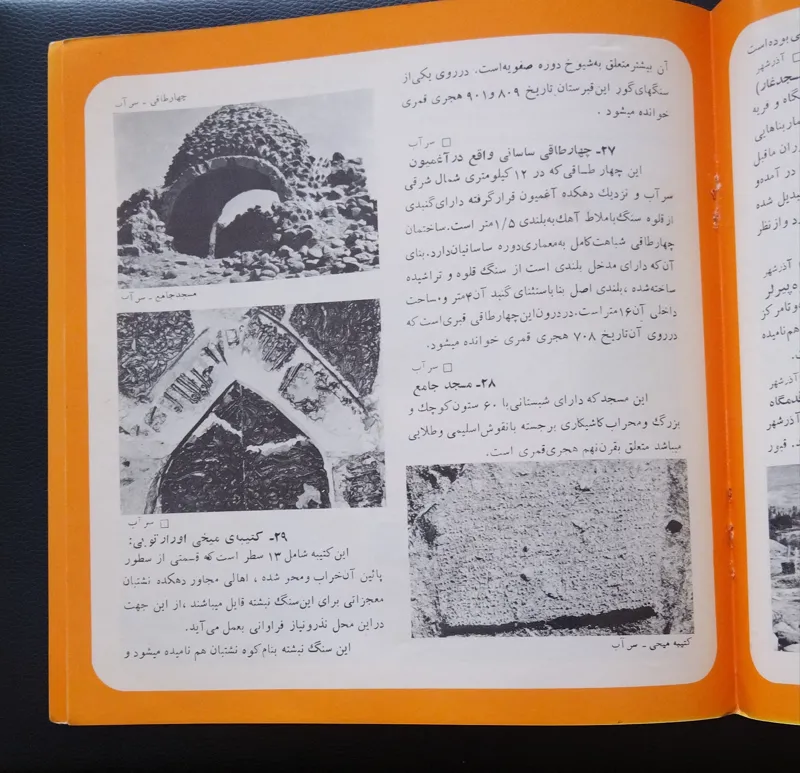 آن بیشتر متعلق به‌شیوخ دوره صفویه‌است. در روی یکی‌از
سنگهای‌گور این‌قبرستان تاریخ ۸۰۹ و ۹۰۱ هجری قمری
خوانده میشود .
□ سرآب
۲۷ـ چهارطاقی ساسانی واقع در آغمیون
این چهار طـاقی‌که در ۱۲ کیلومتری شمال شرقی
سرآب و نزدیك دهکده آغمیون قرارگرفته دارای‌گنبدی
از قلوه سنگ‌با ملاط آهك به‌بلندی ۱/۵ متر است. ساختمان
چهارطاقی شباهت‌کامل به‌معماری‌دوره ساسانیان‌دارد. بنای
آن‌که دارای مدخل بلندی است از سنگ قلوه و تراشیده
ساخته‌شده ، بلندی اصل بنا باستثنای گنبد آن ۴ متر و مساحت
داخلی آن ۱۶ متر است. در درون‌این‌چهارطاقی قبری‌است که
در روی آن تاریخ ۷۰۸ هجری قمری خوانده میشود.
□ سرآب
۲۸ـ مسجد جامع
این مسجد که دارای شبستانی‌با ۶۰ ستون‌کوچك و
بزرگ و محراب کاشیکاری برجسته بانقوش‌اسلیمی وطلایی
میباشد متعلق بقرن‌نهم هجری‌قمری است.
کتیبه میخی ـ سرآب
چهارطاقی ـ سرآب
مسجد جامع ـ سرآب
□ سرآب
۲۹ـ کتیبه‌ی میخی اورارتویی:
این‌کتیبه شامل ۱۳ سطر است که قسمتی از سطور
پائین آن‌خراب ومحر شده ، اهالی مجاور دهکده نشتبان
معجزاتی برای این‌سنگ نبشته قایل میباشند ، از این جهت
در این محل نذرونیاز فراوانی بعمل می‌آید.
این سنگ نبشته بنام‌کوه نشتبان هم نامیده میشود و
ی بوده است
□ آذرشهر
گاه و قریه
ماربناهایی
وران ماقبل
در آمده‌و
بدیل شده
د و از نظر
آذرشهر
وتامرکز
هم‌نامیده
آذرشهر
دمگاه
آذرشهر
. قبور